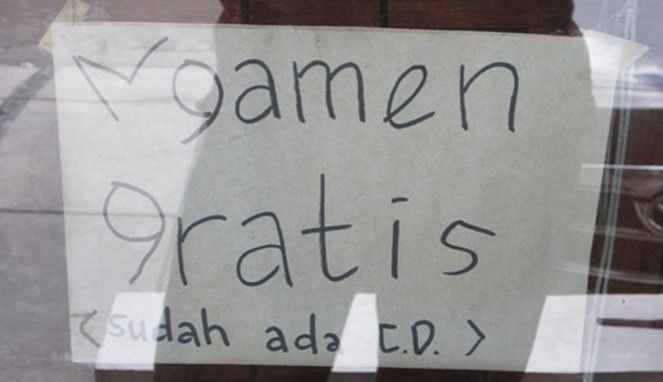 Ngamen
gratis
<sudah ada C.D.>